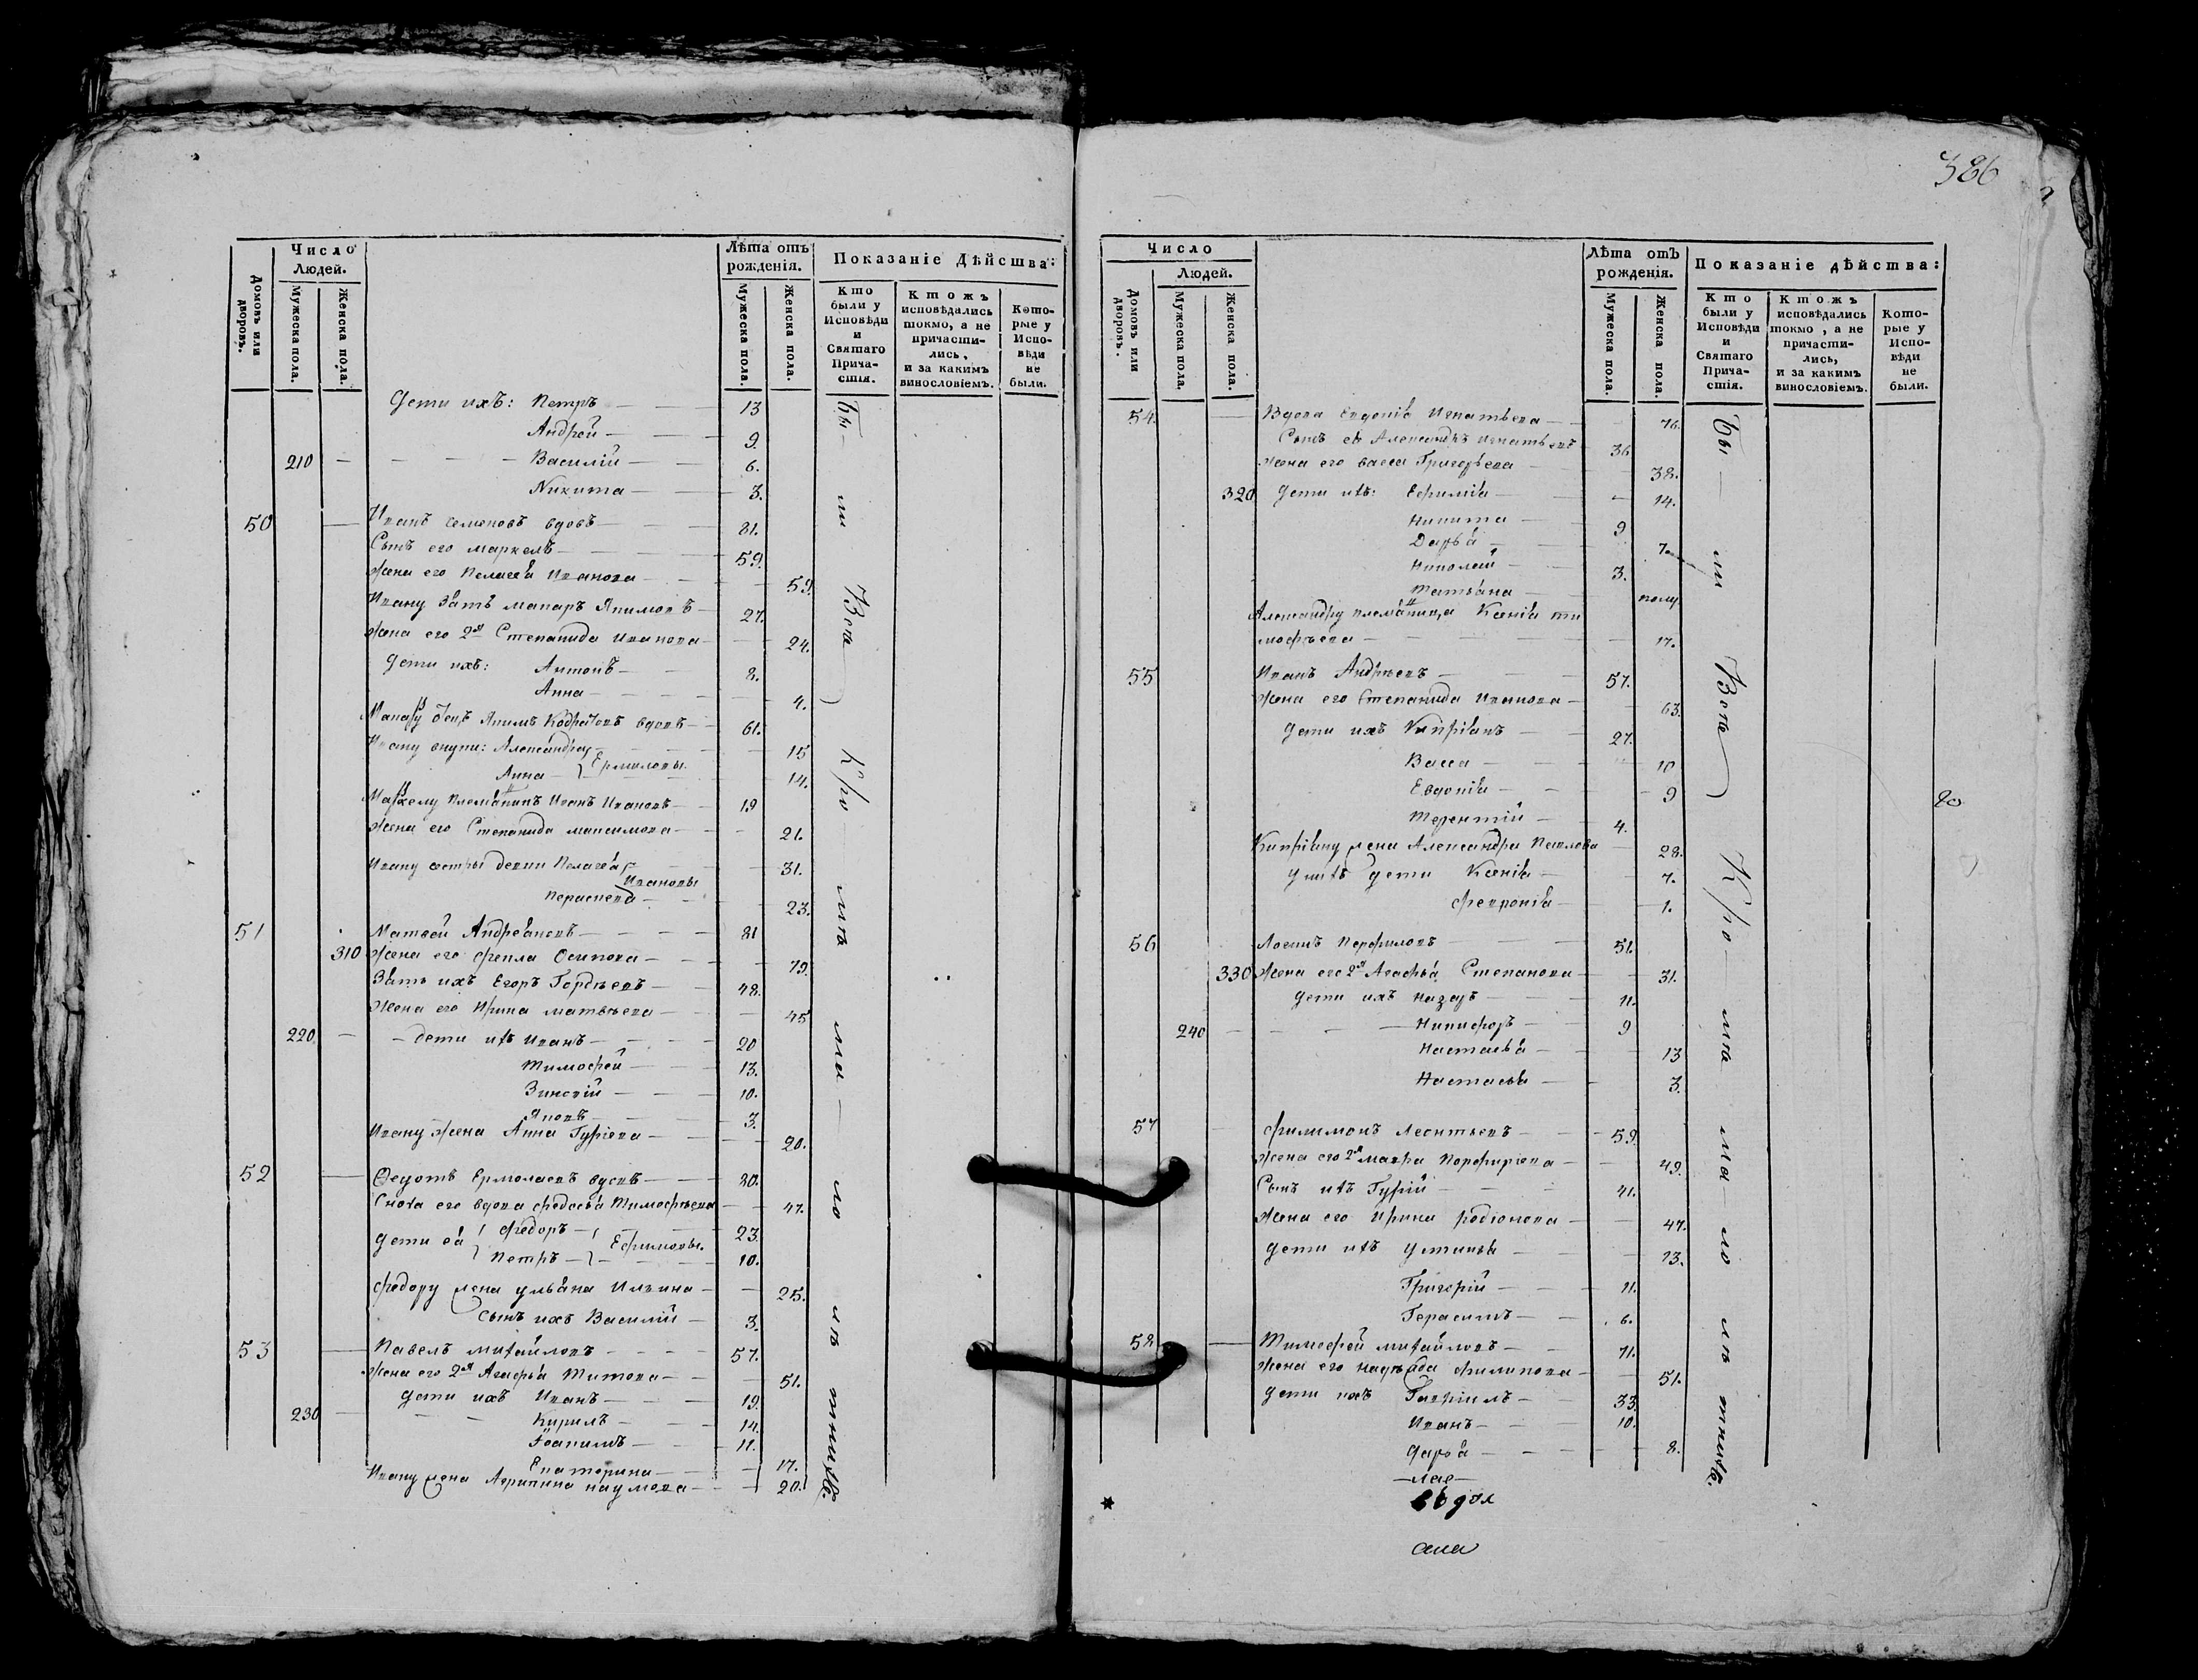 386
Число
Людей.
Домовъ или дворовъ.
Мужеска пола.
Женска пола.
Лѣта отъ рожденія.
Мужеска пола.
Женска пола.
Показаніе Дѣйства:
Кто были у Исповѣди и Святаго Причастія.
Ктожъ исповѣдались токмо, а не причастились, и за какимъ винословіемъ.
Которые у Исповѣди не были.
Дети ихъ: Петръ — 13
Андрей — 9.
210 — Василій — 6.
Никита — 3.
50 Иванъ Семеновъ вдовъ — 81.
Сынъ его Маркелъ — 59.
Жена его Пелагея Иванова — 59.
Ивану Зять Макаръ Якимовъ — 27.
Жена его 2я Степанида Иванова — 24.
Дети ихъ: Антонъ — 8.
Анна — 4.
Макару Отецъ Якимъ Кодратовъ вдовъ — 61.
Ивану внуки: Александра — 15
Анна — Ермиловы 14.
Маркелу Племянникъ Иванъ Ивановъ — 19
Жена его Степанида Максимова — 21.
Ивану сестры девки Пелагея — 31.
Ивановы
Параскева — 23.
51 Матвей Андреяновъ — 81
310 Жена его Фекла Осипова — 79.
Зять ихъ Егоръ Гордѣевъ — 48.
Жена его Ирина Матвѣева — 45
220 — дети ихъ Иванъ — 20
Тимофей — 13.
Зиновій — 10.
Яковъ — 3.
Ивану жена Анна Гуріева — 20.
52 Ѳедотъ Ермолаевъ вдовъ — 80.
Сноха его вдова Федосья Тимофѣева — 47.
Дети ея Федоръ — 23.
Петръ — Ефимовы. 10.
Федору жена Ульяна Ильина — 25.
Сынъ ихъ Василій — 3.
53 Павелъ Михайловъ — 57.
Жена его 2я Агафья Титова — 51.
Дети ихъ Иванъ — 19.
230 — Кирилъ — 14.
Іоакимъ — 11.
Екатерина — 17.
Ивану жена Агрипина Наумова — 20.
Бы — ли Всѣ Кро — мѣ ма — ло лѣ тнихъ.
Число
Людей.
Домовъ или дворовъ.
Мужеска пола.
Женска пола.
Лѣта отъ рожденія.
Мужеска пола.
Женска пола.
Показаніе дѣйства:
Кто были у Исповѣди и Святаго Причастія.
Ктожъ исповѣдались токмо, а не причастились, и за какимъ винословіемъ.
Которые у Исповѣди не были.
54. Вдова Евдокія Игнатьева — 76.
Сынъ ея Александръ Игнатьевъ 36
Жена его Васса Григорьева — 38.
320 Дети ихъ: Ефимія — 14.
Никита — 9
Дарья — 7.
Николай — 3.
Татьяна — полу
Александру племянница Ксенія Ти
мофѣева — 17.
55 Иванъ Андрѣевъ — 57.
Жена его Степанида Иванова — 63.
Дети ихъ Кипріянъ — 27.
Васса — 10
Евдокія — 9
Терентій — 4.
Кипріяну жена Александра Павлова 28.
У нихъ дети Ксенія — 7.
Февронія — 1.
56 Логинъ Перфиловъ — 51.
330 Жена его 2я Агафья Степанова — 31.
Дети ихъ Назаръ — 11.
240 — Никифоръ — 9
Настасья — 13
Настасья — 3.
57 Филимонъ Леонтьевъ — 59.
Жена его 2я Мавра Порфиріева — 49.
Сынъ ихъ Гурій — 41.
Жена его Ирина Родіонова — 47.
Дети ихъ Устинья — 13.
Григорій — 11.
Герасимъ — 6.
58. Тимофей Михайловъ — 71.
Жена его Надѣжда Филипова — 51.
Дети ихъ Гавріилъ — 33.
Иванъ — 10.
Дарья — 8.
Бы — ли Всѣ Кро — мѣ ма — ло лѣ тнихъ.